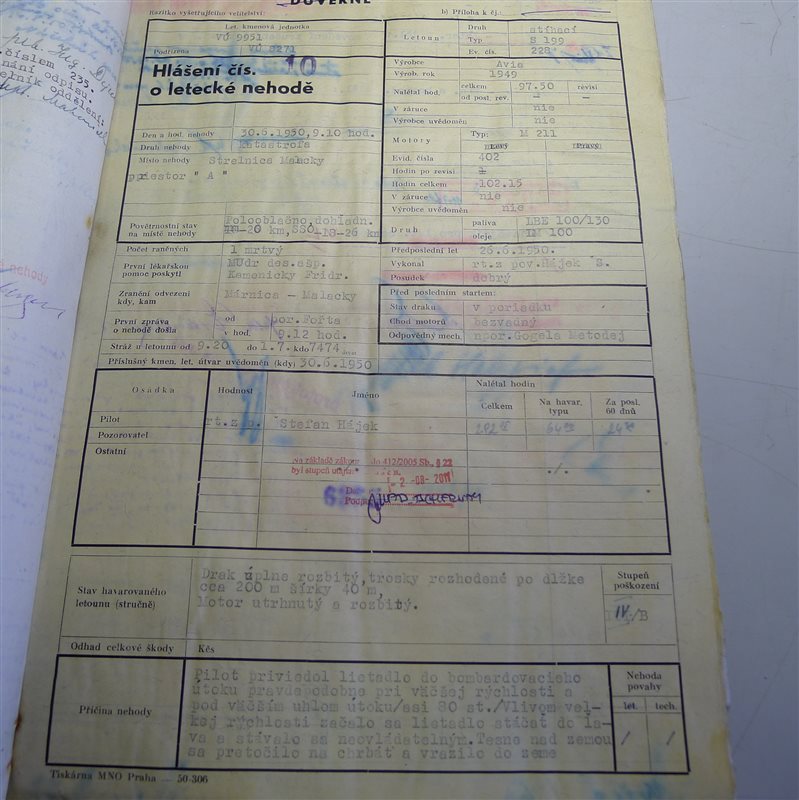 DŮVĚRNÉ
Razítko vyšetřujícího velitelství:
b) Příloha k čj.:
Let. kmenová jednotka
VÚ 9951
Podřízena
VÚ 8271
Letoun
Druh stíhací
Typ S 199
Ev. číslo 228
Hlášení čís. 10
o letecké nehodě
Výrobce Avia
Výrob. rok 1949
Nalétal hod.
celkem 97.50 revisi
od posl. rev. — —
V záruce nie
Výrobce uvědoměn nie
Den a hod. nehody 30.6.1950,9.10 hod.
Druh nehody katastrofa
Místo nehody Strelnica Malacky
priestor "A"
Motory
Typ: M 211
Levý Pravý
Evid. čísla 402
Hodin po revisi
Hodin celkem 102.15
V záruce nie
Výrobce uvědoměn nie
Povětrnostní stav
na místě nehody
Polooblačno,dohladn.
18-20 km,SSO-18-26 km
Druh
paliva LBE 100/130
oleje IM 100
Počet raněných 1 mrtvý
První lékařskou
pomoc poskytl
MUdr des.asp.
Kamenicky Fridr.
Předposlední let 26.6.1950.
Vykonal rt.z pov.Hájek S.
Posudek dobrý
Zranění odvezeni
kdy, kam
Márnica - Malacky
Před posledním startem:
Stav draku v poriadku
Chod motorů bezvadný
Odpovědný mech. npor.Gogela Matodej
První zpráva
o nehodě došla
od por.Fořta
v hod. 9.12 hod.
Stráž u letounu od 9.20 do 1.7. kdo 7474
Příslušný kmen. let. útvar uvědoměn (kdy) 30.6.1950
Osádka
Hodnost
Jméno
Nalétal hodin
Celkem
Na havar.
typu
Za posl.
60 dnů
Pilot rt.z p. Štefan Hájek
Pozorovatel
Ostatní
Na základě zákona 412/2005 Sb., § 22
byl stupeň utajení
-2 -08- 2011
./.
Stav havarovaného
letounu (stručně)
Drak úplne rozbitý,trosky rozhodené po dĺžke
cca 200 m šírky 40 m,
Motor utrhnutý a rozbitý.
Stupeň
poškození
IV./B
Odhad celkové škody Kčs
Příčina nehody
Pilot priviedol lietadlo do bombardovacieho
útoku pravdepodobne pri väčšej rýchlosti a
pod väčším uhlom útoku/asi 80 st./Vlivom vel-
kej rýchlosti začalo sa lietadlo stáčať do ľa-
va a stávalo sa neovládatelným.Tesne nad zemou
sa pretočilo na chrbát a vrazilo do zeme
Nehoda
povahy
let. tech.
/ /
Tiskárna MNO Praha — 50-306